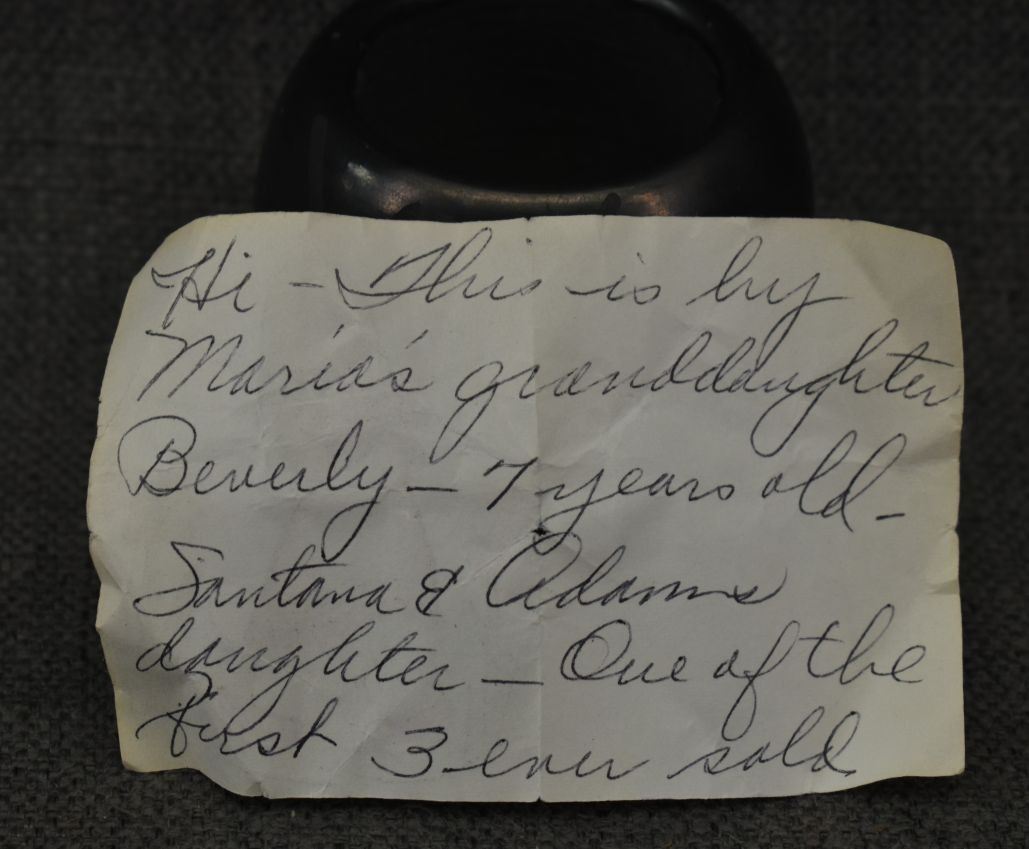 Hi - This is by
Maria's granddaughter
Beverly - 7 years old -
Santana & Adams
daughter - One of the
first 3 ever sold